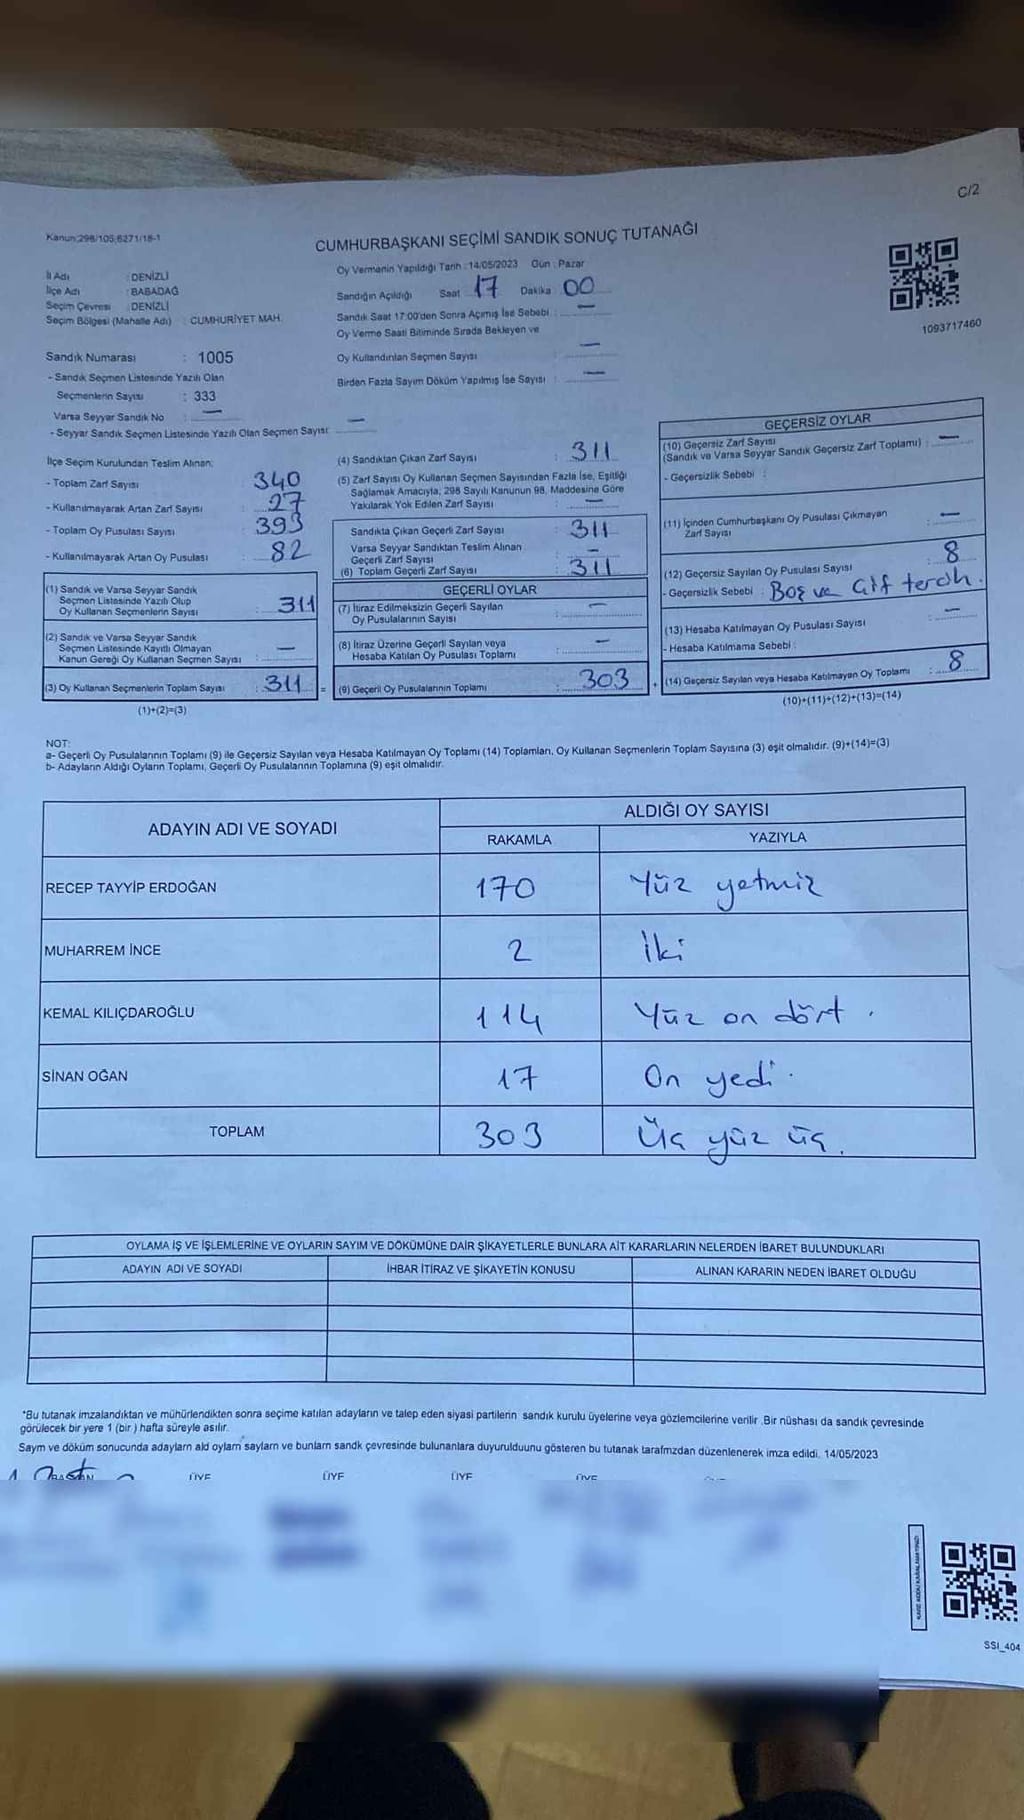 C/2
Kanun:298/105;6271/18-1
CUMHURBAŞKANI SEÇİMİ SANDIK SONUÇ TUTANAĞI
İl Adı : DENİZLİ
İlçe Adı : BABADAĞ
Seçim Çevresi : DENİZLİ
Seçim Bölgesi (Mahalle Adı) : CUMHURİYET MAH.
Oy Vermenin Yapıldığı Tarih : 14/05/2023 Gün : Pazar
Sandığın Açıldığı Saat 17 Dakika 00
Sandık Saat 17:00'den Sonra Açımış İse Sebebi : —
Oy Verme Saati Bitiminde Sırada Bekleyen ve
Oy Kullandırılan Seçmen Sayısı : —
Birden Fazla Sayım Döküm Yapılmış İse Sayısı : —
1093717460
Sandık Numarası : 1005
- Sandık Seçmen Listesinde Yazılı Olan
Seçmenlerin Sayısı : 333
Varsa Seyyar Sandık No : —
- Seyyar Sandık Seçmen Listesinde Yazılı Olan Seçmen Sayısı: —
İlçe Seçim Kurulundan Teslim Alınan;
- Toplam Zarf Sayısı : 340
- Kullanılmayarak Artan Zarf Sayısı : 27
- Toplam Oy Pusulası Sayısı : 393
- Kullanılmayarak Artan Oy Pusulası : 82
(1) Sandık ve Varsa Seyyar Sandık
Seçmen Listesinde Yazılı Olup
Oy Kullanan Seçmenlerin Sayısı : 311
(2) Sandık ve Varsa Seyyar Sandık
Seçmen Listesinde Kayıtlı Olmayan
Kanun Gereği Oy Kullanan Seçmen Sayısı : —
(3) Oy Kullanan Seçmenlerin Toplam Sayısı : 311 =
(1)+(2)=(3)
(4) Sandıktan Çıkan Zarf Sayısı : 311
(5) Zarf Sayısı Oy Kullanan Seçmen Sayısından Fazla İse, Eşitliği
Sağlamak Amacıyla, 298 Sayılı Kanunun 98. Maddesine Göre
Yakılarak Yok Edilen Zarf Sayısı : —
Sandıkta Çıkan Geçerli Zarf Sayısı : 311
Varsa Seyyar Sandıktan Teslim Alınan
Geçerli Zarf Sayısı : —
(6) Toplam Geçerli Zarf Sayısı : 311
GEÇERLİ OYLAR
(7) İtiraz Edilmeksizin Geçerli Sayılan
Oy Pusulalarının Sayısı : —
(8) İtiraz Üzerine Geçerli Sayılan veya
Hesaba Katılan Oy Pusulası Toplamı : —
(9) Geçerli Oy Pusulalarının Toplamı : 303 +
GEÇERSİZ OYLAR
(10) Geçersiz Zarf Sayısı
(Sandık ve Varsa Seyyar Sandık Geçersiz Zarf Toplamı) : —
- Geçersizlik Sebebi :
(11) İçinden Cumhurbaşkanı Oy Pusulası Çıkmayan
Zarf Sayısı : —
(12) Geçersiz Sayılan Oy Pusulası Sayısı : 8
- Geçersizlik Sebebi : Boş ve Çift tercih.
(13) Hesaba Katılmayan Oy Pusulası Sayısı : —
- Hesaba Katılmama Sebebi :
(14) Geçersiz Sayılan veya Hesaba Katılmayan Oy Toplamı : 8
(10)+(11)+(12)+(13)=(14)
NOT:
a- Geçerli Oy Pusulalarının Toplamı (9) ile Geçersiz Sayılan veya Hesaba Katılmayan Oy Toplamı (14) Toplamları, Oy Kullanan Seçmenlerin Toplam Sayısına (3) eşit olmalıdır. (9)+(14)=(3)
b- Adayların Aldığı Oyların Toplamı, Geçerli Oy Pusulalarının Toplamına (9) eşit olmalıdır.
ADAYIN ADI VE SOYADI ALDIĞI OY SAYISI
RAKAMLA YAZIYLA
RECEP TAYYİP ERDOĞAN 170 Yüz yetmiz
MUHARREM İNCE 2 İki
KEMAL KILIÇDAROĞLU 114 Yüz on dört.
SİNAN OĞAN 17 On yedi.
TOPLAM 303 Üç yüz üç.
OYLAMA İŞ VE İŞLEMLERİNE VE OYLARIN SAYIM VE DÖKÜMÜNE DAİR ŞİKAYETLERLE BUNLARA AİT KARARLARIN NELERDEN İBARET BULUNDUKLARI
ADAYIN ADI VE SOYADI İHBAR İTİRAZ VE ŞİKAYETİN KONUSU ALINAN KARARIN NEDEN İBARET OLDUĞU
"Bu tutanak imzalandıktan ve mühürlendikten sonra seçime katılan adayların ve talep eden siyasi partilerin sandık kurulu üyelerine veya gözlemcilerine verilir .Bir nüshası da sandık çevresinde
görülecek bir yere 1 (bir ) hafta süreyle asılır.
Saym ve döküm sonucunda adaylarn ald oylarn saylarn ve bunlarn sandk çevresinde bulunanlara duyurulduunu gösteren bu tutanak tarafmzdan düzenlenerek imza edildi. 14/05/2023
ÜYE ÜYE ÜYE ÜYE
SSI_404